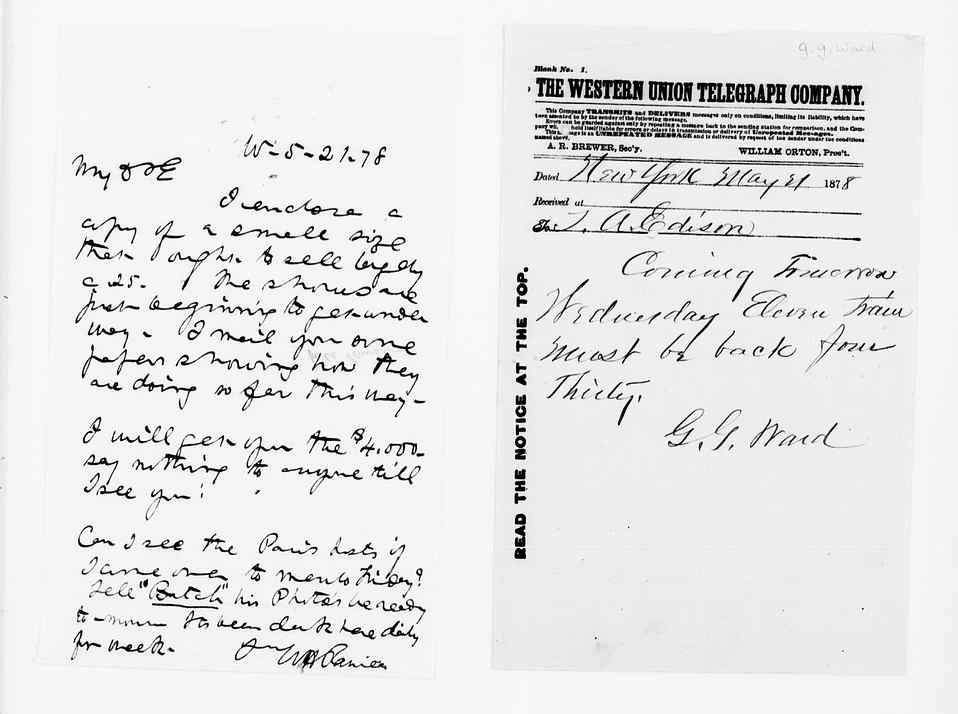 W-5-21-78
My D E
I enclose a
copy of a small size
that ought to sell largely
a 25. The shows are
just beginning to get under
way. I mail you some
papers showing how they
are doing so far this way-
I will get you the $4,000-
say nothing to anyone till
I see you!
Can I see the Paris lists if
I come over to menlo Friday?
Tell "Batch" his Photos be ready
to-morrow Its been dark here daily
for week.
g. g. Ward
Blank No. 1.
THE WESTERN UNION TELEGRAPH COMPANY.
This Company TRANSMITS and DELIVERS messages only on conditions, limiting its liability, which have
been assented to by the sender of the following message.
Errors can be guarded against only by repeating a message back to the sending station for comparison, and the Com-
pany will hold itself liable for errors or delays in transmission or delivery of Unrepeated Messages
This is an UNREPEATED MESSAGE and is delivered by request of the sender under the conditions
named above.
A. R. BREWER, Sec'y. WILLIAM ORTON, Pres't.
Dated New York May 21 1878
Received at
To T. A. Edison
Coming Tomorrow
Wednesday Eleven Train
Must be back four
Thirty.
G. G. Ward
READ THE NOTICE AT THE TOP.